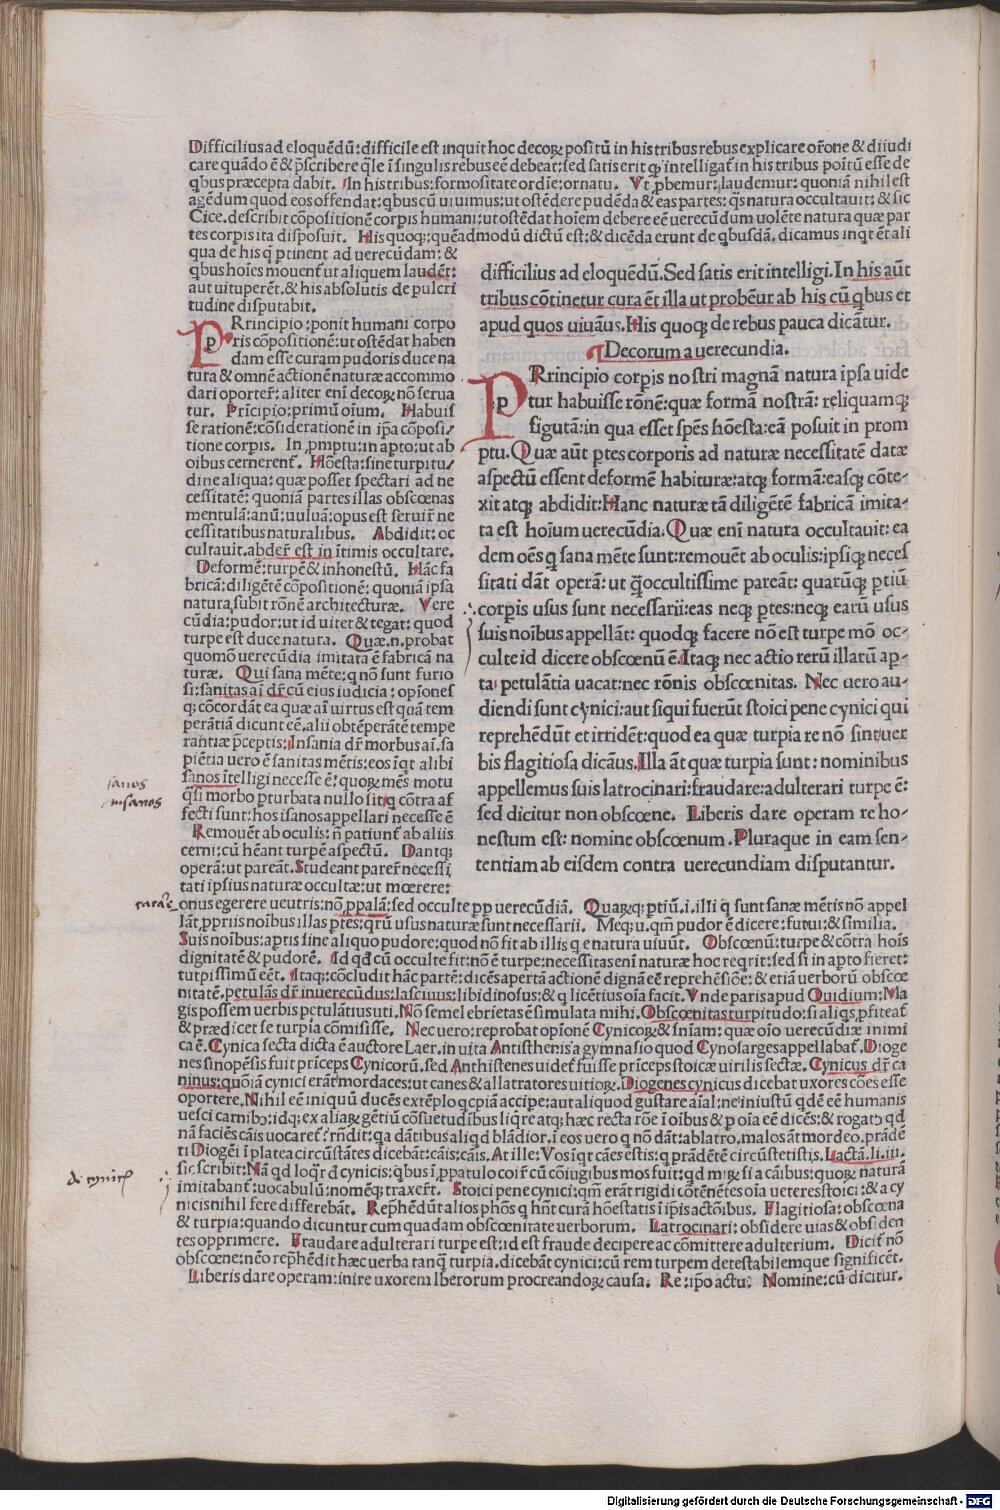 Difficilius ad eloquēdū: difficile est inquit hoc decoꝝ positū in his tribus rebus explicare or̄one & diiudi
care quādo ē & p̄scribere q̄le ī singulis rebus eē debeat: sed satis erit ꝙ intelligat̄ in his tribus poītū esse de
qbus præcepta dabit. In his tribus: formositate ordīe: ornatu. Vt ꝓbemur: laudemur: quoniā nihil est
agēdum quod eos offendat: qbus cū uiuimus: ut ostēdere pudēda & eas partes: q̄s natura occultauit: & sic
Cice. describit cōpositionē corꝑis humani: ut ostēdat hoīem debere eē uerecūdum uolēte natura quæ par
tes corꝑis ita disposuit. His quoqꝫ: quēadmodū dictū est: & dicēda erunt de qbusdā, dicamus inqt ēt ali
qua de his q̄ ptinent ad uerecūdam: &
qbus hoīes mouent̄ ut aliquem laudēt:
aut uituperēt. & his absolutis de pulcri
tudine disputabit.
PRrincipio: ponit humani corpo
ris cōpositionē: ut ostēdat haben
dam esse curam pudoris duce na
tura & omnē actionē naturæ accommo
dari oportet̄: aliter enī decoꝝ nō serua
tur. Prīcipio: primū oīum. Habuis
se rationē: cōsiderationē in ip̄a cōposi/
tione corpis. In ꝓmptu: in apto: ut ab
oībus cernerent̄. Hōesta: sine turpitu/
dine aliqua: quæ posset spectari ad ne
cessitatē: quoniā partes illas obscœnas
mentulā: anū: uuluā: opus est seruir̄ ne
cessitatibus naturalibus. Abdidit: oc
cultauit. abder̄ est in ītimis occultare.
Deformē: turpē & inhonestū. Hāc fa
bricā: diligētē cōpositionē: quoniā ipsa
natura subit rōnē architecturæ. Vere
cūdia: pudor: ut id uitet & tegat: quod
turpe est duce natura. Quæ. n. probat
quomō uerecūdia imitata ē fabricā na
turæ. Qui sana mēte: q nō sunt furio
si: sanitas aī dr̄ cū eius iudicia: opīones
q; cōcordāt ea quæ aī uirtus est quā tem
perātiā dicunt eē. alii obtēperātē tempe
rantiæ p̄ceptis: Insania dr̄ morbus aī. sa
piētia uero ē sanitas mētis: eos īqt alibi
sanos ītelligi necesse ē: quoꝝ mēs motu
q̄si morbo pturbata nullo sit: q cōtra af
fecti sunt: hos īsanos appellari necesse ē
Remouēt ab oculis: n̄ patiunt̄ ab aliis
cerni: cū hēant turpē aspectū. Dantqꝫ
operā: ut pareāt. Studeant parer̄ necessi
tati ipsius naturæ occultæ: ut mœrere:
difficilius ad eloquēdū. Sed satis erit intelligi. In his aūt
tribus cōtinetur cura ēt illa ut probēur ab his cū qbus et
apud quos uiuāus. His quoqꝫ de rebus pauca dicātur.
Decorum a uerecundia.
PRrincipio corpis nostri magnā natura ipsa uide
tur habuisse rōnē: quæ formā nostrā: reliquamqꝫ
figutā: in qua esset spēs hōesta: eā posuit in prom
ptu. Quæ aūt ptes corporis ad naturæ necessitatē datæ
aspectū essent deformē habituræ: atqꝫ formā: easqꝫ cōte-
xit atqꝫ abdidit: Hanc naturæ tā diligētē fabricā imita-
ta est hoīum uerecūdia. Quæ enī natura occultauit: ea
dem oēs q sana mēte sunt: remouēt ab oculis: ipsiqꝫ neces
sitati dāt operā: ut q̄occultissime pareāt: quarūqꝫ ptiū
corpis usus sunt necessarii: eas neqꝫ ptes: neqꝫ earū usus
suis noībus appellāt: quodqꝫ facere nō est turpe mō oc-
culte id dicere obscœnū ē. Itaqꝫ nec actio rerū illatū ap-
ta petulātia uacat: nec rōnis obscœnitas. Nec uero au-
diendi sunt cynici: aut siqui fuerūt stoici pene cynici qui
reprehēdūt et irridēt: quod ea quæ turpia re nō sint uer
bis flagitiosa dicāus. Illa āt quæ turpia sunt: nominibus
appellemus suis latrocinari: fraudare: adulterari turpe ē:
sed dicitur non obscœne. Liberis dare operam re ho-
nestum est: nomine obscœnum. Pluraque in eam sen-
tentiam ab eisdem contra uerecundiam disputantur.
sanos
insanos
onus egerere ueutris: nō ꝓpalā: sed occulte ꝓp uerecūdiā. Quaꝝqꝫ ptiū. i. illi q̄ sunt sanæ mētis nō appel
lāt ꝓpriis noībus illas ptes: qrū usus naturæ sunt necessarii. Meqꝫ: u. qm̄ pudor ē dicere: futui: & similia.
Suis noībus: aptis sine aliquo pudore: quod nō fit ab illis q e natura uiuūt. Obscœnū: turpe & cōtra hoīs
dignitatē & pudorē. Id qd cū occulte fit: nō ē turpe: necessitas enī naturæ hoc reqrit: sed si in apto fieret:
turpissimū eēt. Itaqꝫ: cōcludit hāc partē: dicēs apertā actionē dignā eē reprehēsiōe: & etiā uerborū obscœ
nitatē. petulās dr̄ inuerecūdus: lasciuus: libidinosus: & q licētius oīa facit. Vnde paris apud Ouidium: Ma
gis possem uerbis petulātius uti. Nō semel ebrietas ē simulata mihi. Obscœnitas turpitudo: si aliqs ꝓfiteat̄
& prædicet se turpia cōmisisse. Nec uero: reprobat opīonē Cynicoꝝ & sn̄iam: quæ oīo uerecūdiæ inimi
ca ē. Cynica secta dicta ē auctore Laer. in uita Antisthenis a gymnasio quod Cynosarges appellabat̄. Dioge
nes sinopēsis fuit prīceps Cynicorū, sed Anthistenes uidet̄ fuisse prīceps stoicæ uirilis sectæ. Cynicus dr̄ ca
ninus: quōiā cynici erāt mordaces: ut canes & allatratores uitioꝝ. Diogenes cynicus dicebat uxores cōes esse
oportere. Nihil eē iniquū ducēs extēplo q cpiā accipe: aut aliquod gustare aīal: ne iniustū qdē eē humanis
uesci carnibꝰ: idqꝫ ex aliaꝝ gētiū cōsuetudībus liqre atqꝫ hæc recta rōe ī oībus & p oīa eē dicēs: & rogatꝰ qd
nā faciēs cāis uocaret̄? rn̄dit: qa dātibus aliqd blādior. ī eos uero q nō dāt: ablatro. malos āt mordeo. prādē
ti Diogēi ī platea circūstātes dicebāt: cāis: cāis. At ille: Vos īqt cāes estis: q prādētē circūstetistis. Lactā. li. iii.
sic scribit: Nā qd loqr̄ d cynicis: qbus ī ꝓpatulo coir̄ cū cōiugibus mos fuit: qd miꝝ si a cāibus: quoꝝ naturā
imitabant̄: uocabulū: nomēqꝫ traxer̄t. Stoici pene cynici: qm̄ erāt rigidi cōtēnētes oīa ueteres stoici: & a cy
nicis nihil fere differebāt. Rephēdūt alios phōs q hn̄t curā hōestatis ī ip̄is actōibus. Flagitiosa: obscœna
& turpia: quando dicuntur cum quadam obscœnitate uerborum. Latrocinari: obsidere uias & obsiden
tes opprimere. Fraudare adulterari turpe est: id est fraude decipere ac cōmittere adulterium. Dicit̄ nō
obscœne: nēo rep̄hēdit hæc uerba tanq̄ turpia. dicebāt cynici: cū rem turpem detestabilemque significēt.
Liberis dare operam: inire uxorem lberorum procreandoꝝ causa. Re: ip̄o actu. Nomine: cū dicitur.
Digitalisierung gefördert durch die Deutsche Forschungsgemeinschaft - DFG